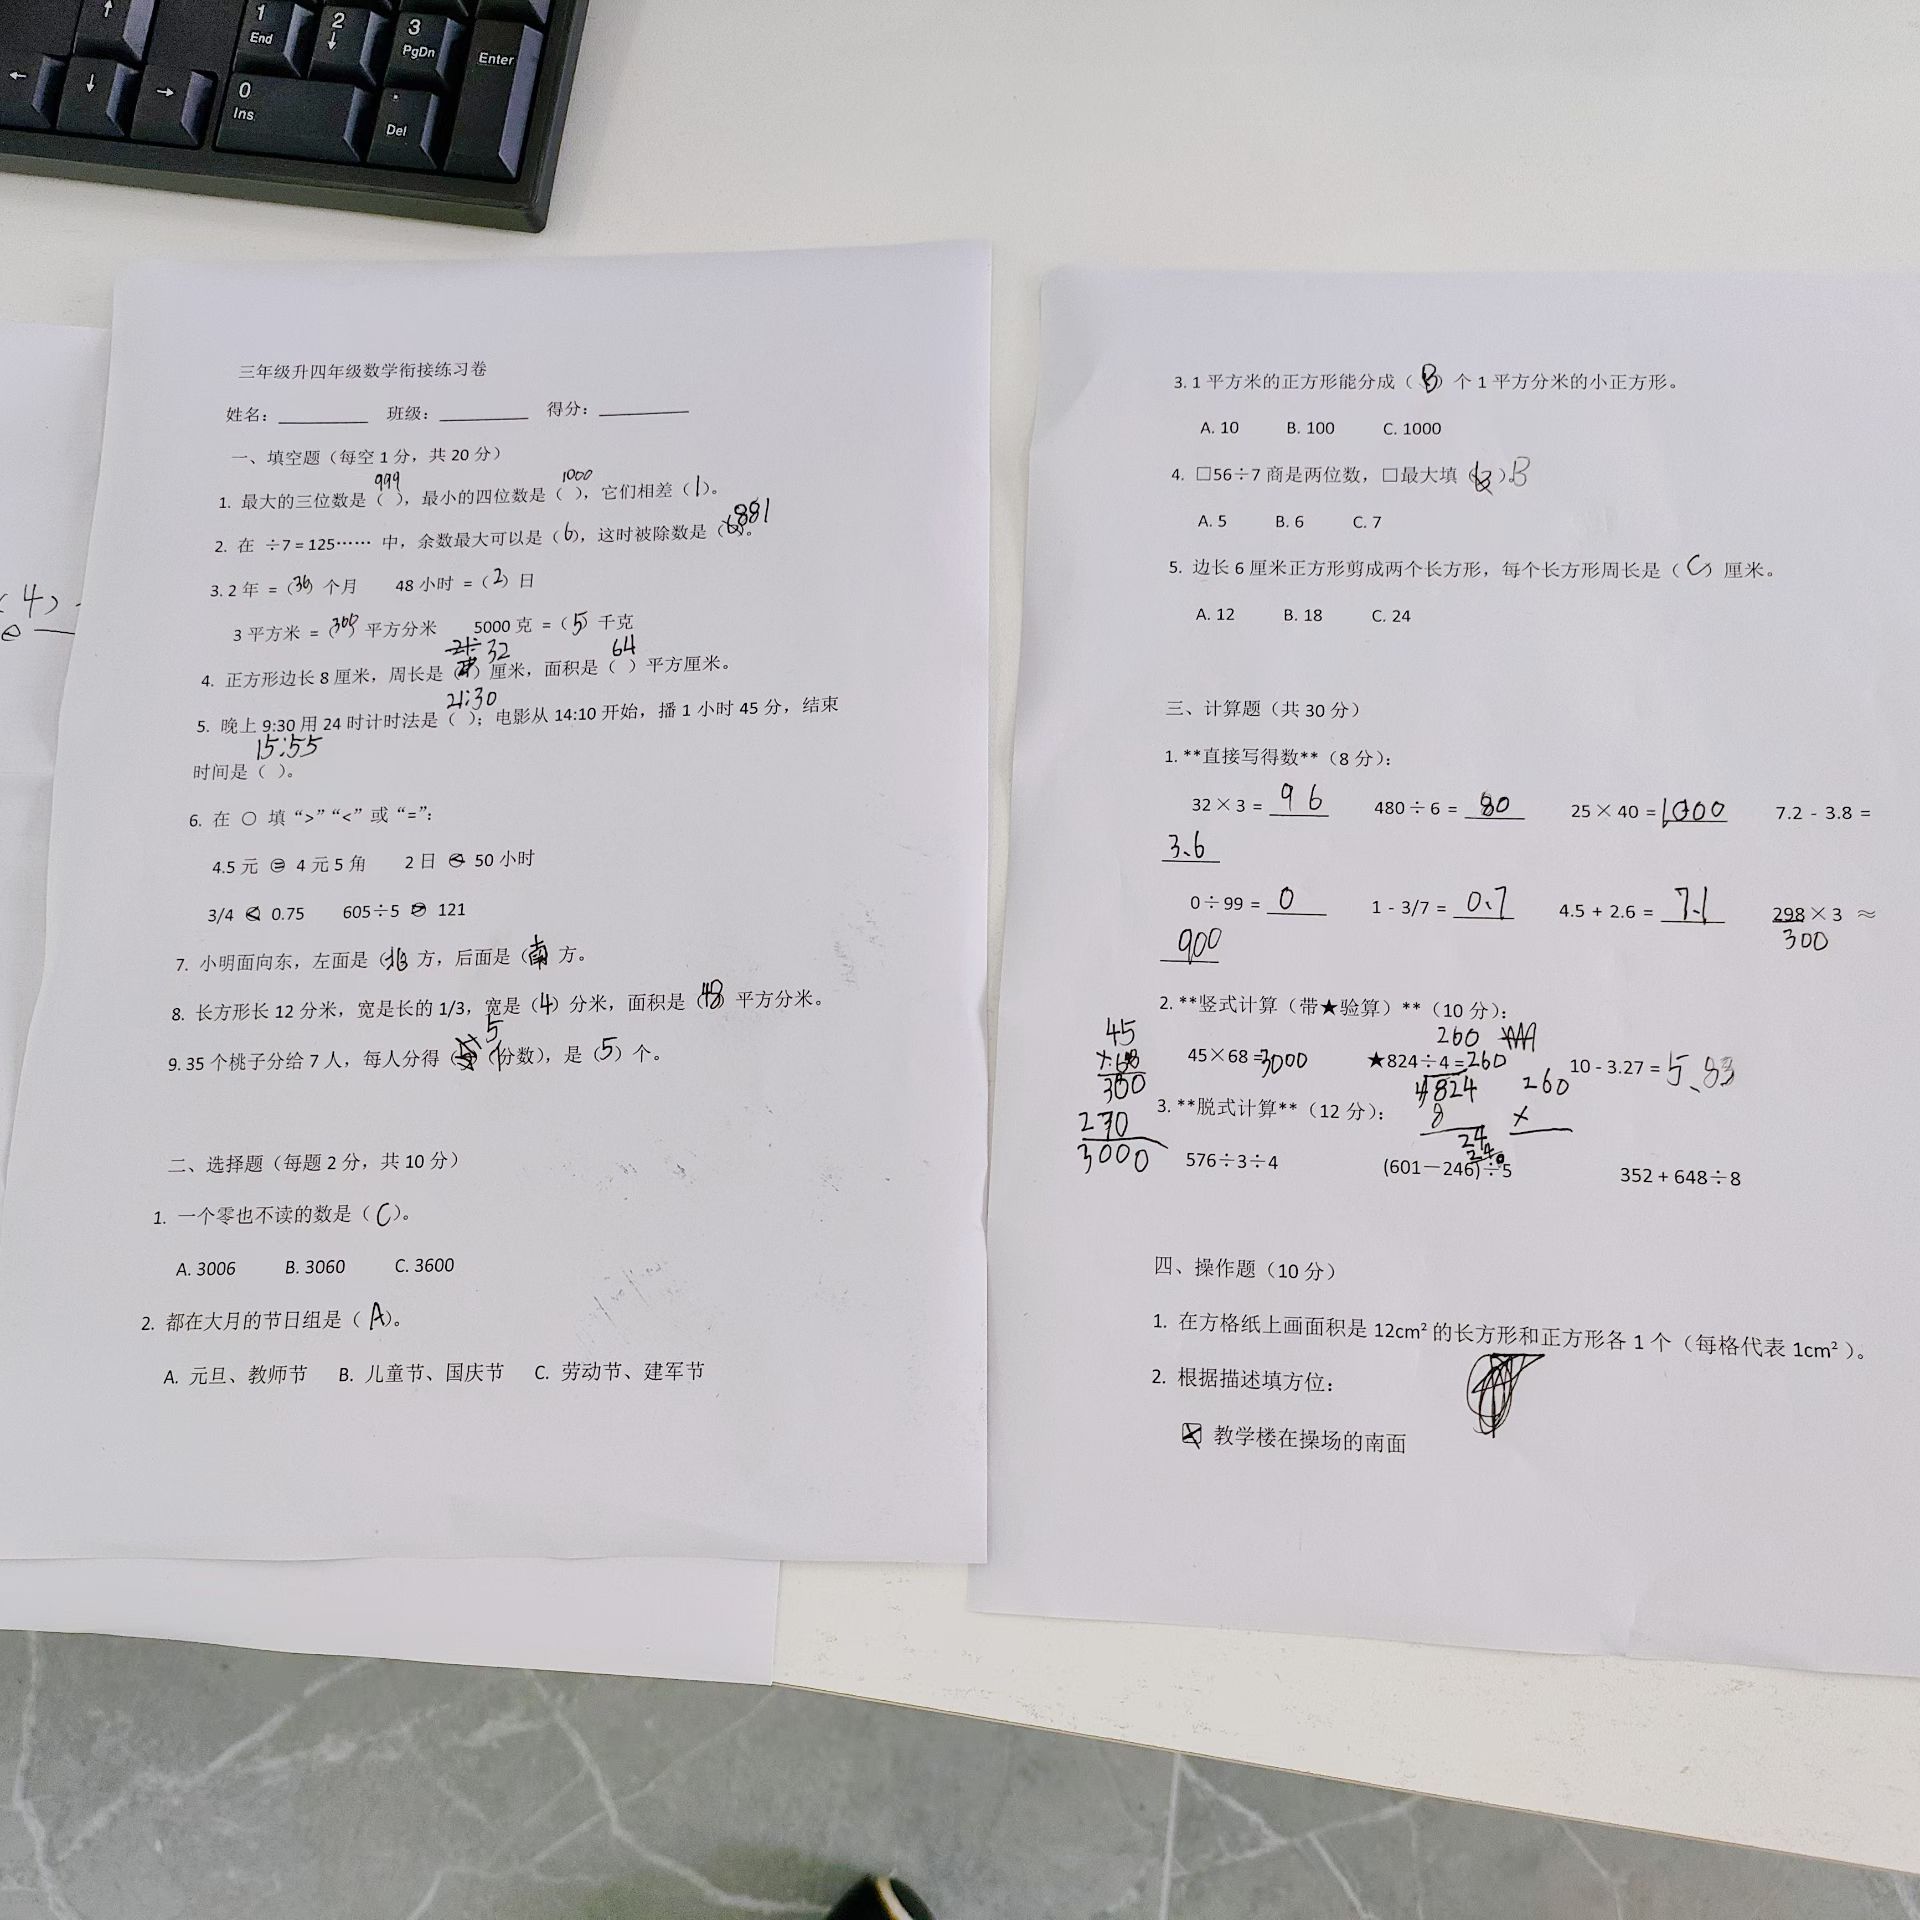 1 2 3
End PgDn Enter
0
Ins Del
三年级升四年级数学衔接练习卷
姓名：________ 班级：________ 得分：________
一、填空题（每空 1 分，共 20 分）
1. 最大的三位数是（999），最小的四位数是（1000），它们相差（1）。
2. 在 ÷7 = 125…… 中，余数最大可以是（6），这时被除数是（881）。
3. 2 年 =（36）个月 48 小时 =（2）日
3 平方米 =（300）平方分米 5000 克 =（5）千克
4. 正方形边长 8 厘米，周长是（32）厘米，面积是（64）平方厘米。
5. 晚上 9:30 用 24 时计时法是（21:30）；电影从 14:10 开始，播 1 小时 45 分，结束
时间是（15:55）。
6. 在 〇 填 “>” “<” 或 “=”：
4.5 元 = 4 元 5 角 2 日 < 50 小时
3/4 < 0.75 605÷5 > 121
7. 小明面向东，左面是（北）方，后面是（南）方。
8. 长方形长 12 分米，宽是长的 1/3，宽是（4）分米，面积是（48）平方分米。
9. 35 个桃子分给 7 人，每人分得（5）（分数），是（5）个。
二、选择题（每题 2 分，共 10 分）
1. 一个零也不读的数是（C）。
A. 3006 B. 3060 C. 3600
2. 都在大月的节日组是（A）。
A. 元旦、教师节 B. 儿童节、国庆节 C. 劳动节、建军节
3. 1 平方米的正方形能分成（B）个 1 平方分米的小正方形。
A. 10 B. 100 C. 1000
4. □56÷7 商是两位数，□最大填（）。B
A. 5 B. 6 C. 7
5. 边长 6 厘米正方形剪成两个长方形，每个长方形周长是（C）厘米。
A. 12 B. 18 C. 24
三、计算题（共 30 分）
1. **直接写得数**（8 分）：
32×3 = 96 480÷6 = 80 25×40 = 1000 7.2 - 3.8 =
3.6
0÷99 = 0 1 - 3/7 = 0.7 4.5 + 2.6 = 7.1 298×3 ≈
900 300
2. **竖式计算（带★验算）**（10 分）：
45 260
×68 45×68 =3000 ★824÷4 =260 10 - 3.27 = 5.83
360 4 824 260
270 3. **脱式计算**（12 分）： 8 ×
3000 24
240
576÷3÷4 (601－246)÷5 352 + 648÷8
四、操作题（10 分）
1. 在方格纸上画面积是 12cm² 的长方形和正方形各 1 个（每格代表 1cm²）。
2. 根据描述填方位：
教学楼在操场的南面
(4)